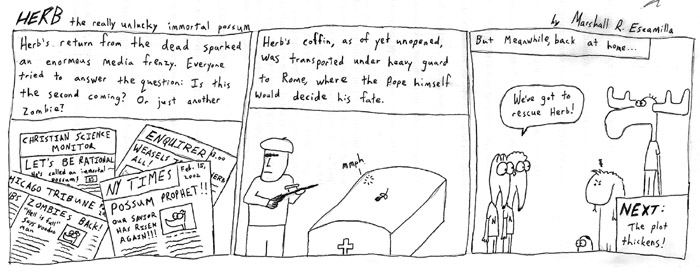 HERB the really unlucky immortal possum
by Marshall R. Escamilla
Herb's return from the dead sparked
an enormous media frenzy. Everyone
tried to answer the question: Is this
the second coming? Or just another
Zombie?
CHRISTIAN SCIENCE
MONITOR
LET'S BE RATIONAL
He's called an immortal
possum!
ENQUIRER
WEASELS
ALL!
CHICAGO TRIBUNE
ZOMBIES BACK!
"Hell is full"
says voodoo
man
NY TIMES
Feb. 15,
2002
POSSUM PROPHET!!
OUR SAVIOR
HAS RISEN
AGAIN!!!
Herb's coffin, as of yet unopened,
was transported under heavy guard
to Rome, where the Pope himself
would decide his fate.
mmph
But Meanwhile, back at home...
We've got to
rescue Herb!
N
A
NEXT:
The plot
thickens!